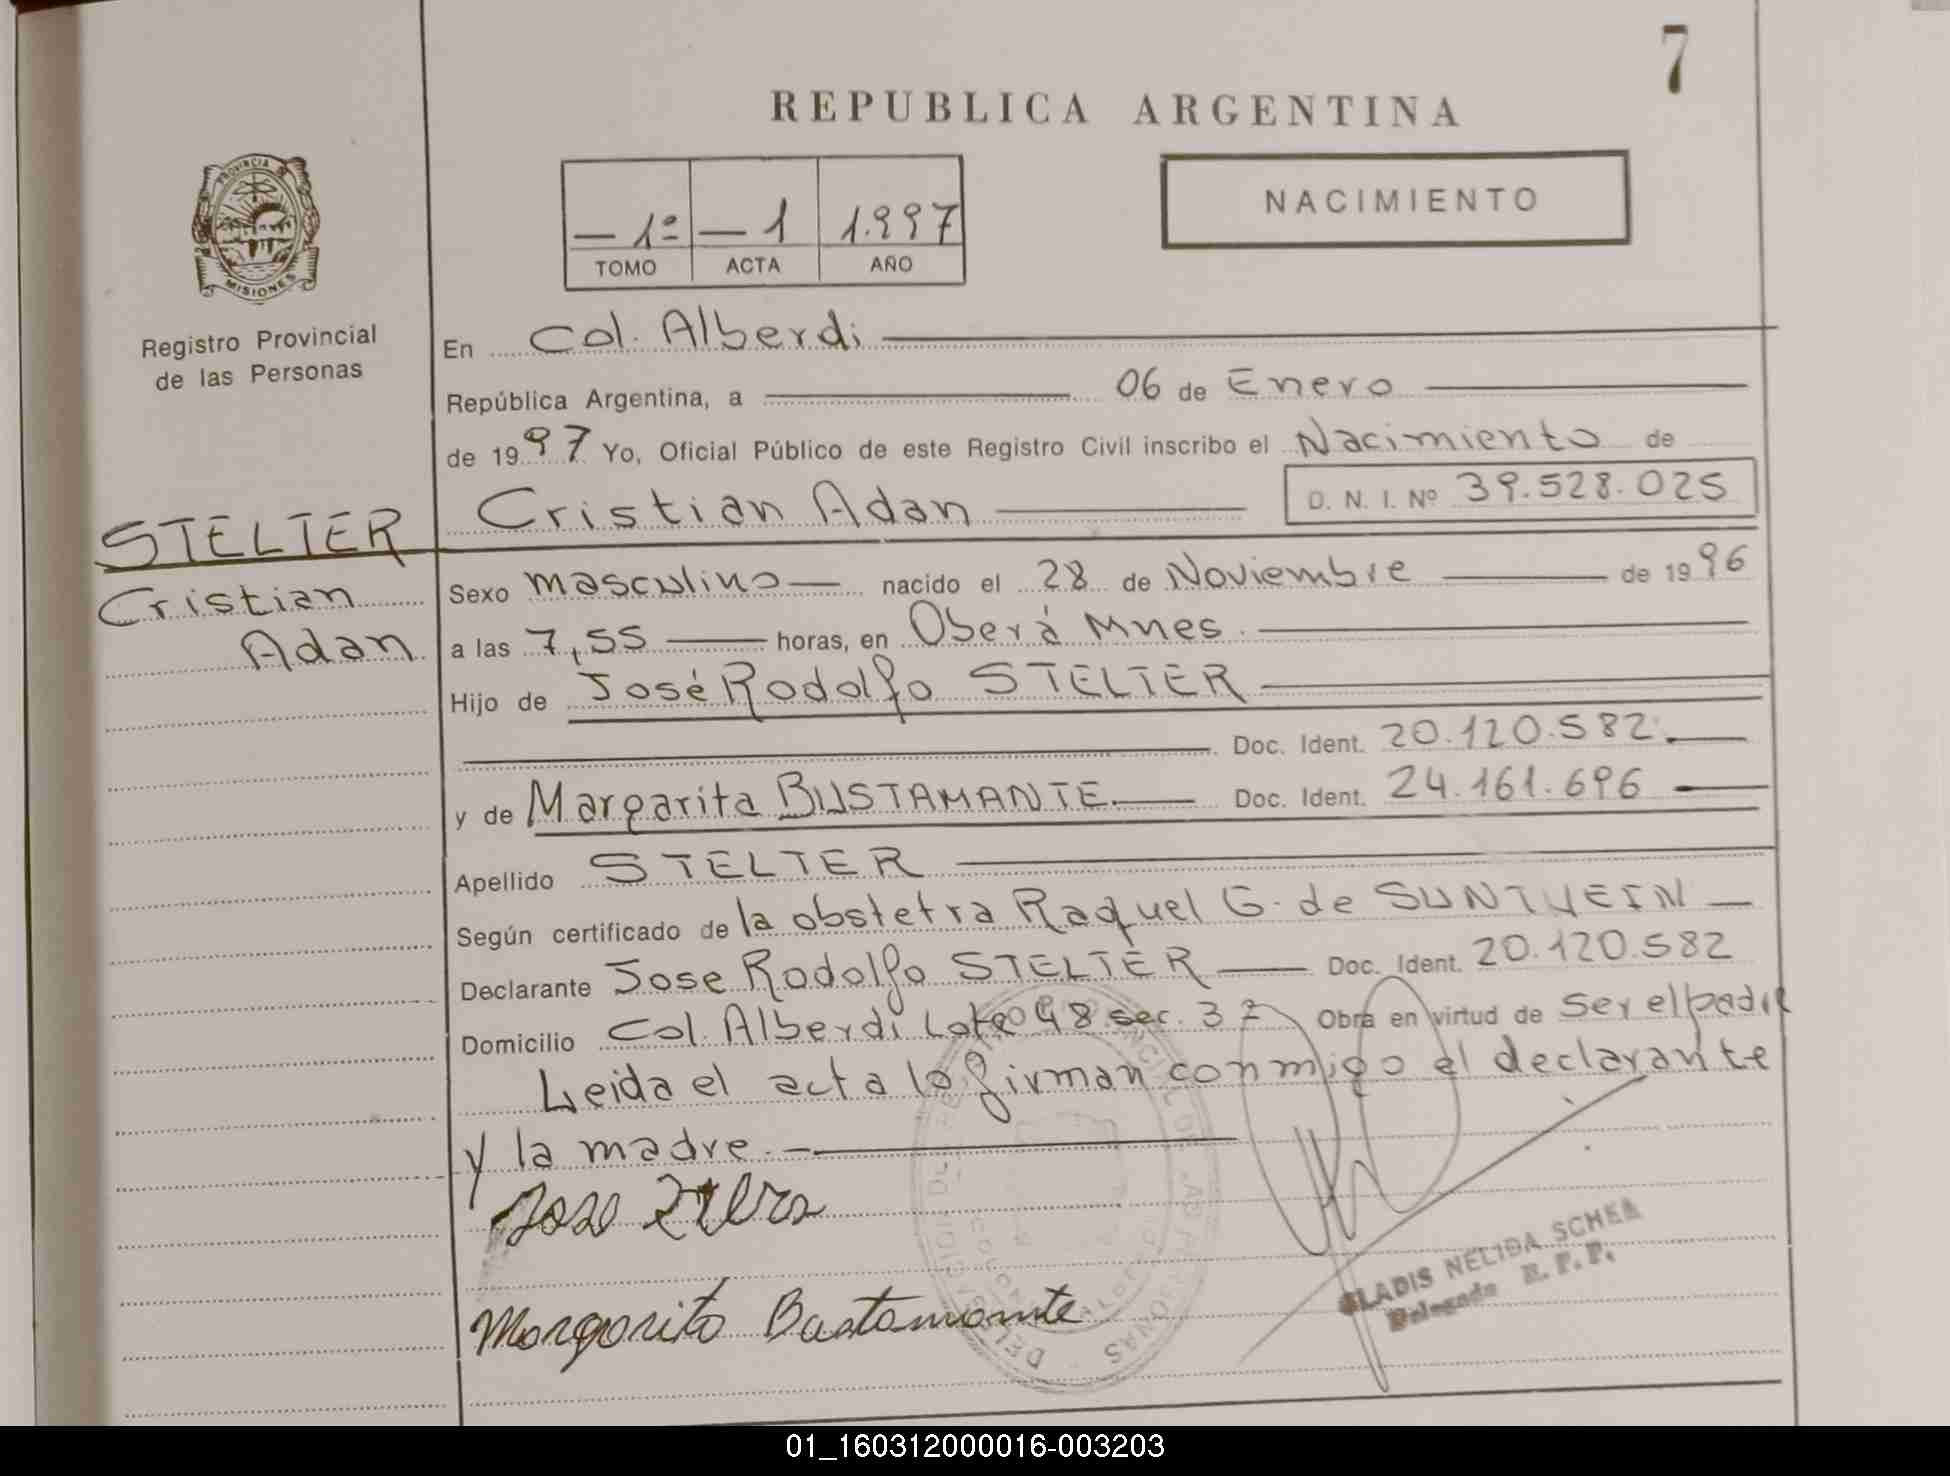 7
REPUBLICA ARGENTINA
PROVINCIA
MISIONES
Registro Provincial
de las Personas
— 1º — 1 1.997
TOMO ACTA AÑO
NACIMIENTO
En Col. Alberdi
República Argentina, a 06 de Enero
de 1997 Yo, Oficial Público de este Registro Civil inscribo el Nacimiento de
Cristian Adan D. N. I. Nº 39.528.025
STELTER
Cristian
Adan
Sexo masculino nacido el 28 de Noviembre de 1996
a las 7,55 horas, en Oberá Mnes.
Hijo de José Rodolfo STELTER
Doc. Ident. 20.120.582.
y de Margarita BUSTAMANTE Doc. Ident. 24.161.696
Apellido STELTER
Según certificado de la obstetra Raquel G. de
Declarante Jose Rodolfo STELTER Doc. Ident. 20.120.582
Domicilio Col. Alberdi Lote 48 sec. 3ª Obra en virtud de Ser el padre
Leida el acta la firman conmigo el declarante
y la madre.
Jose
Margarita Bustamante
GLADIS NELIDA SCHEA
Delegada R.P.P.
01_160312000016-003203